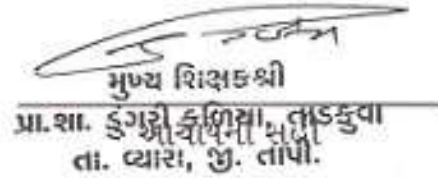 મુખ્ય શિક્ષકશ્રી
પ્રા.શા. ડુંગરી ફળિયા, તાડકુવા
આચાર્યની સહી
તા. વ્યારા, જી. તાપી.